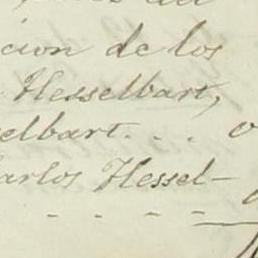 cion de los
Hesselbart,
elbart. . . .
arlos Hessel-
- - - -